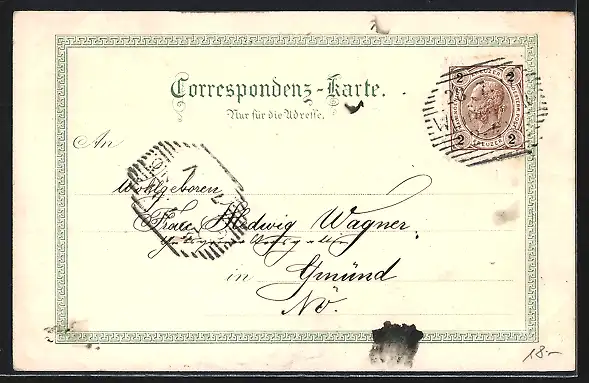 Correspondenz-Karte.
Nur für die Adresse.
2 2
KREUZER
2 2
KREUZER
An
Wohlgeboren
Frau Hedwig Wagner
in Gmünd
Nö.
18.-